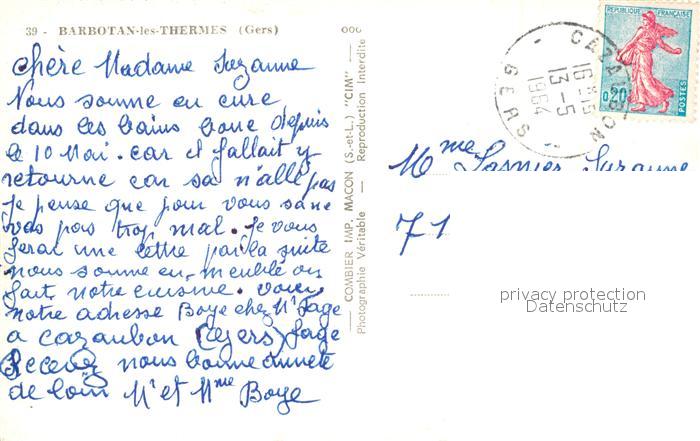 39 - BARBOTAN-les-THERMES (Gers)
Chère Madame Suzanne
Nous somme en cure
dans les bains boue depuis
le 10 Mai. car il fallait y
retourne car sa n'allé pas
je pense que pour vous sane
vas pas trop mal. je vous
ferai une lettre par la suite
nous somme en meublé on
fait notre cuisine. voici
notre adresse Boye chez Mr Fage
a cazaubon (Gers) Fage
Recevez nous bonne
de loin Mr et Mme Boye
COMBIER IMP. MACON (S.-et-L.) "CIM"
Photographie Véritable — Reproduction Interdite
REPUBLIQUE FRANÇAISE
0,20
POSTES
CAZAUBON
16 H 15
13 - 5
1964
GERS
Mme Lasnier Suzanne
71
privacy protection
Datenschutz